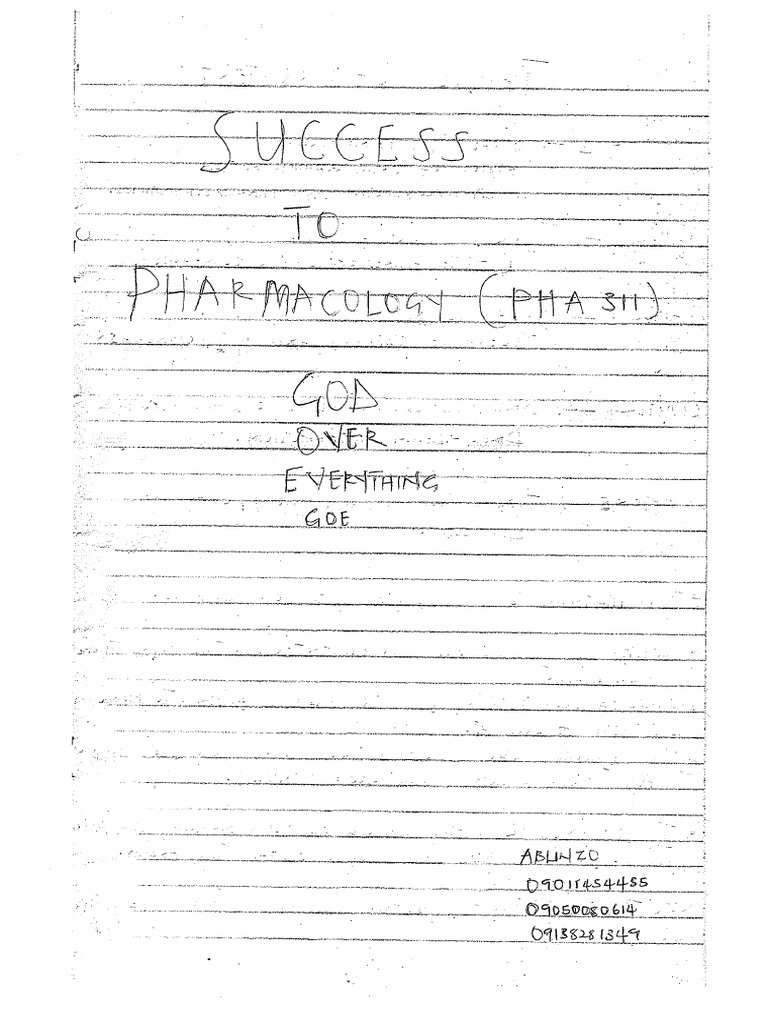 SUCCESS
TO
PHARMACOLOGY (PHA 311)
GOD
OVER
EVERYTHING
GOE
09050080614
09138281349